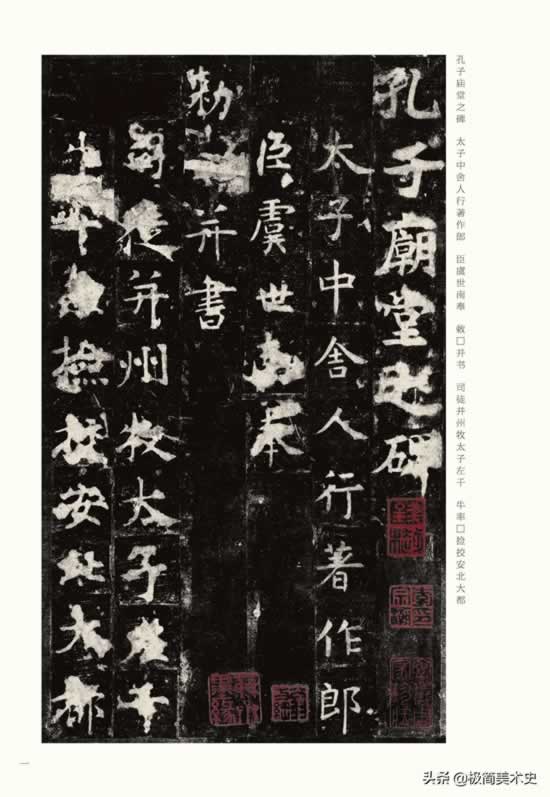 孔子廟堂之碑
太子中舍人行著作郎
臣虞世南奉
勑 并書
司徒并州牧太子左千
牛率 撿挍安北大都
孔子庙堂之碑 太子中舍人行著作郎 臣虞世南奉 敕□并书 司徒并州牧太子左千 牛率□捡挍安北大都
一
头条@极简美术史